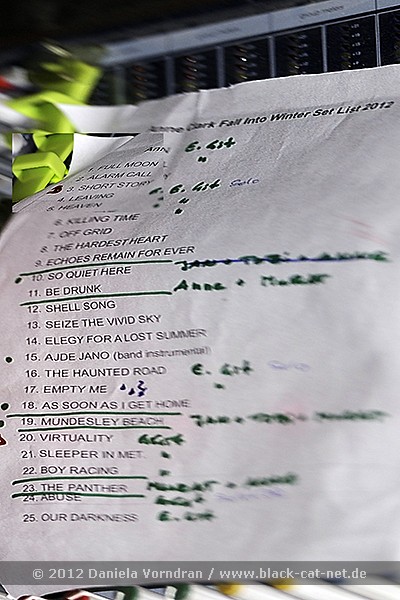 Anne Clark Fall Into Winter Set List 2012
1. FULL MOON E. Git
2. ALARM CALL "
3. SHORT STORY E. Git Solo
4. LEAVING "
5. HEAVEN "
6. KILLING TIME
7. OFF GRID
8. THE HARDEST HEART
9. ECHOES REMAIN FOR EVER
10. SO QUIET HERE
11. BE DRUNK Anne + Murat
12. SHELL SONG
13. SEIZE THE VIVID SKY
14. ELEGY FOR A LOST SUMMER
15. AJDE JANO (band instrumental)
16. THE HAUNTED ROAD E. Git
17. EMPTY ME "
18. AS SOON AS I GET HOME
19. MUNDESLEY BEACH JAN + TOBI + MURAT
20. VIRTUALITY EGit
21. SLEEPER IN MET. "
22. BOY RACING "
23. THE PANTHER MURAT +
24. ABUSE EGit
25. OUR DARKNESS E. Git
© 2012 Daniela Vorndran / www.black-cat-net.de